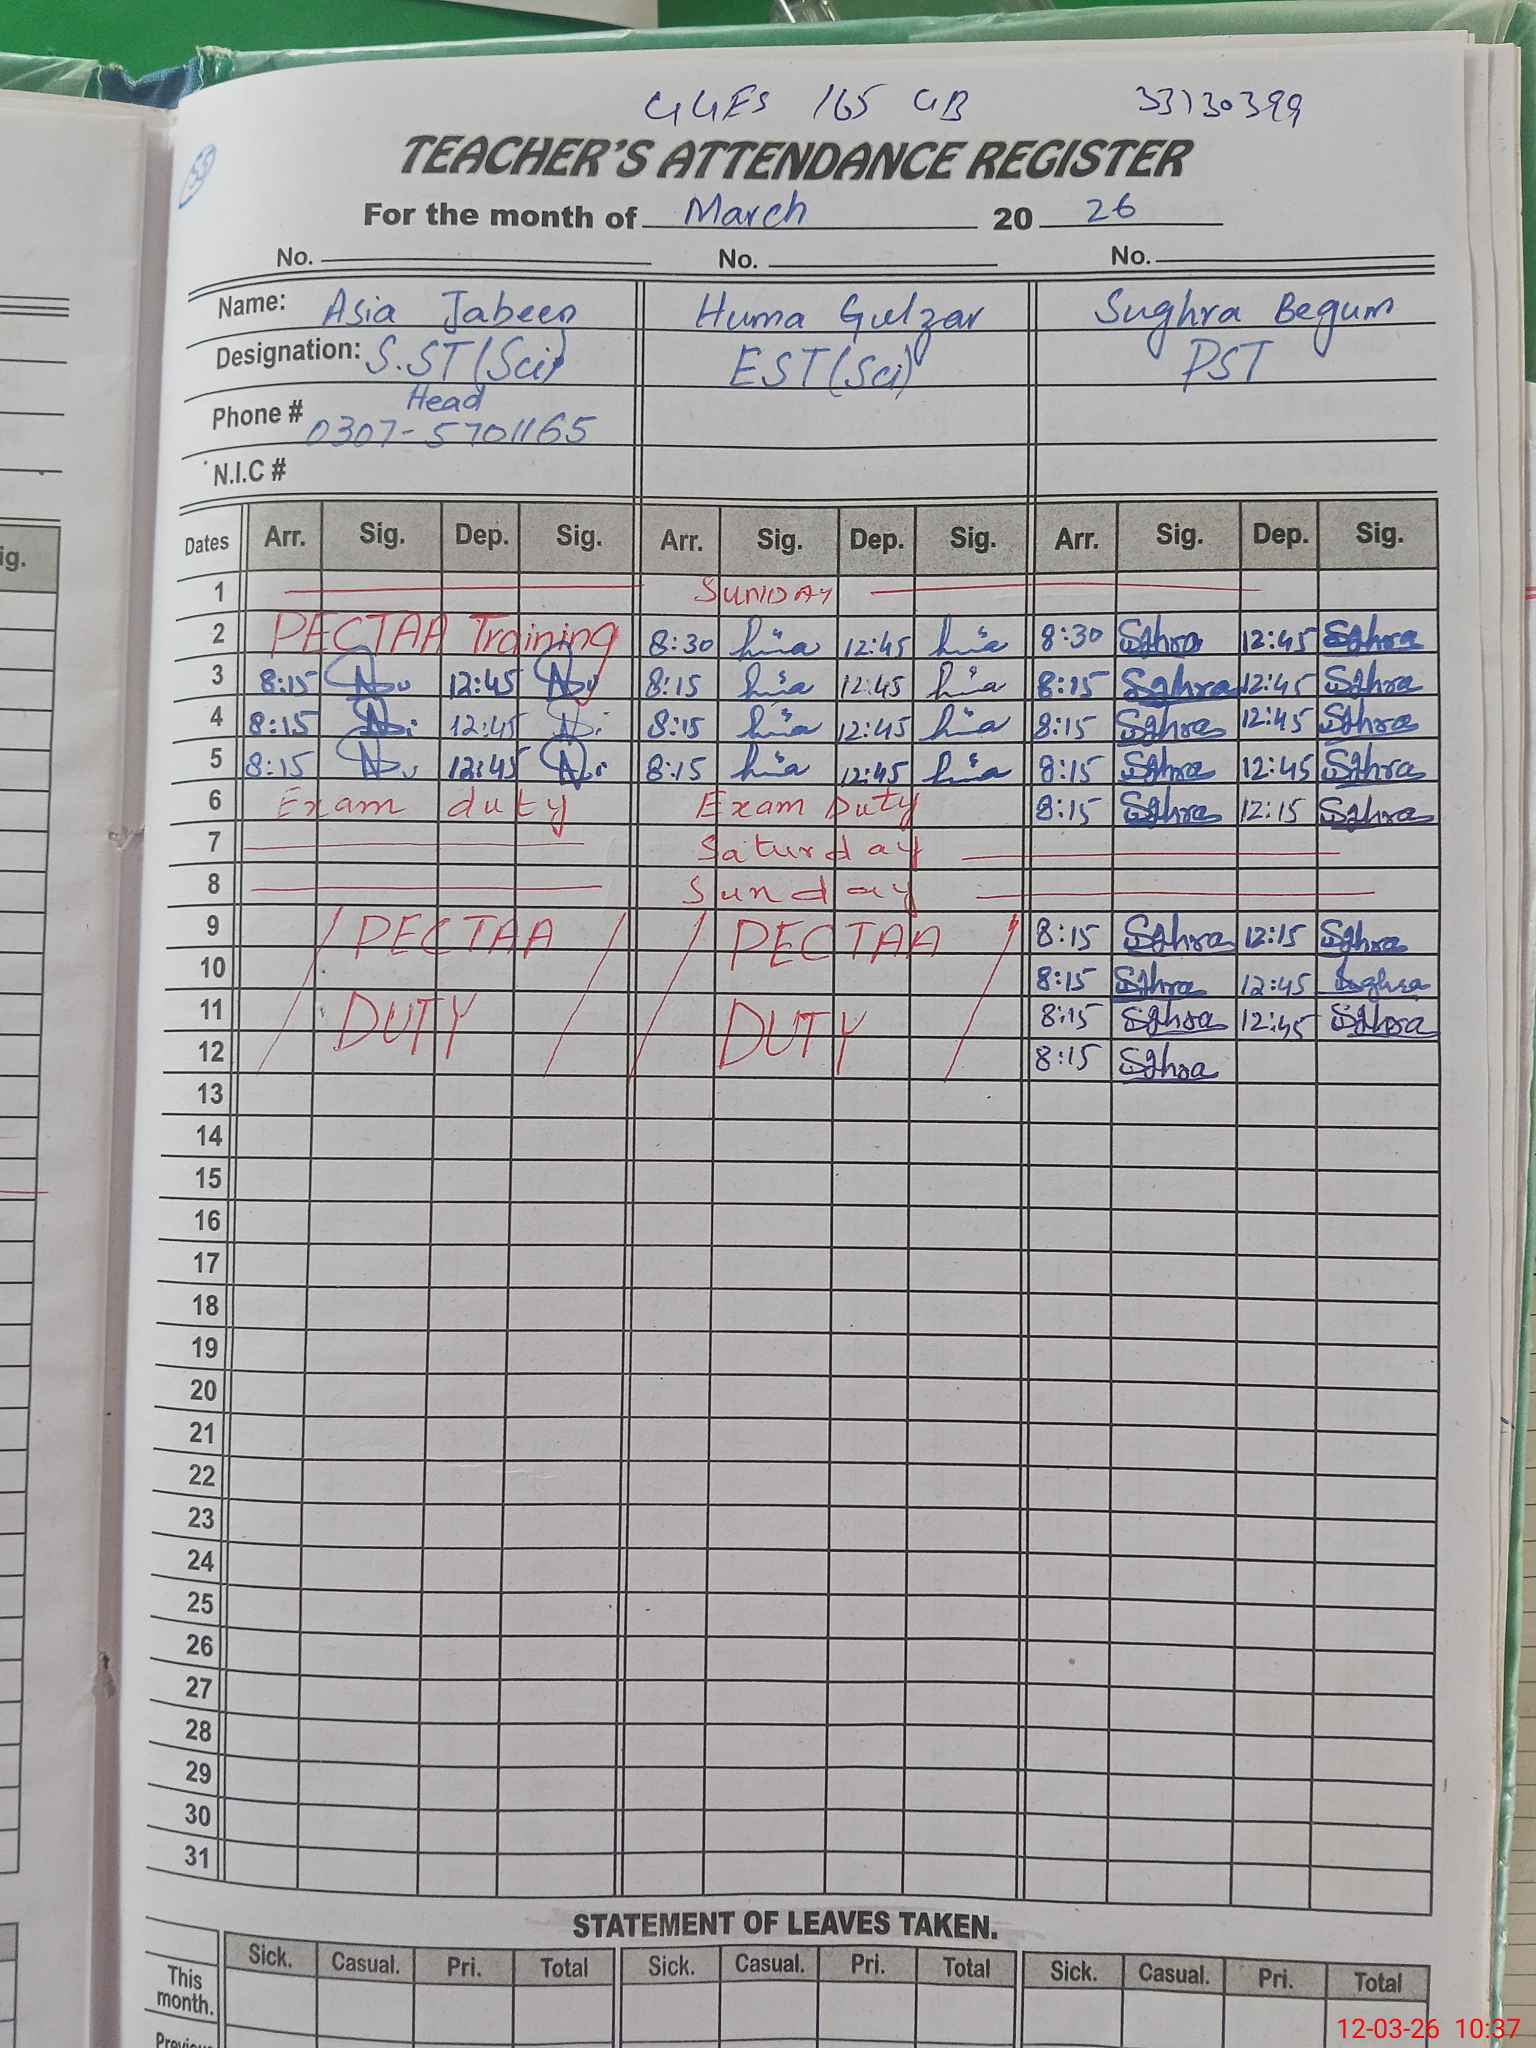 GGES 165 GB 33130399
55
TEACHER'S ATTENDANCE REGISTER
For the month of March 20 26
No. No. No.
Name: Asia Jabeen Huma Gulzar Sughra Begum
Designation: S.ST(Sci) EST(Sci) PST
Head
Phone # 0307-5701165
N.I.C #
ig.
Dates Arr. Sig. Dep. Sig. Arr. Sig. Dep. Sig. Arr. Sig. Dep. Sig.
1 SUNDAY
2 PECTAA Training 8:30 12:45 8:30 Sghra 12:45 Sghra
3 8:15 12:45 8:15 12:45 8:15 Sghra 12:45 Sghra
4 8:15 12:45 8:15 12:45 8:15 Sghra 12:45 Sghra
5 8:15 12:45 8:15 12:45 8:15 Sghra 12:45 Sghra
6 Exam duty Exam Duty 8:15 Sghra 12:15 Sghra
7 Saturday
8 Sunday
9 PECTAA PECTAA 8:15 Sghra 12:15 Sghra
10 8:15 Sghra 12:45 Sughra
11 DUTY DUTY 8:15 Sghra 12:45 Sghra
12 8:15 Sghra
13
14
15
16
17
18
19
20
21
22
23
24
25
26
27
28
29
30
31
STATEMENT OF LEAVES TAKEN.
Sick. Casual. Pri. Total Sick. Casual. Pri. Total Sick. Casual. Pri. Total
This
month.
12-03-26 10:37